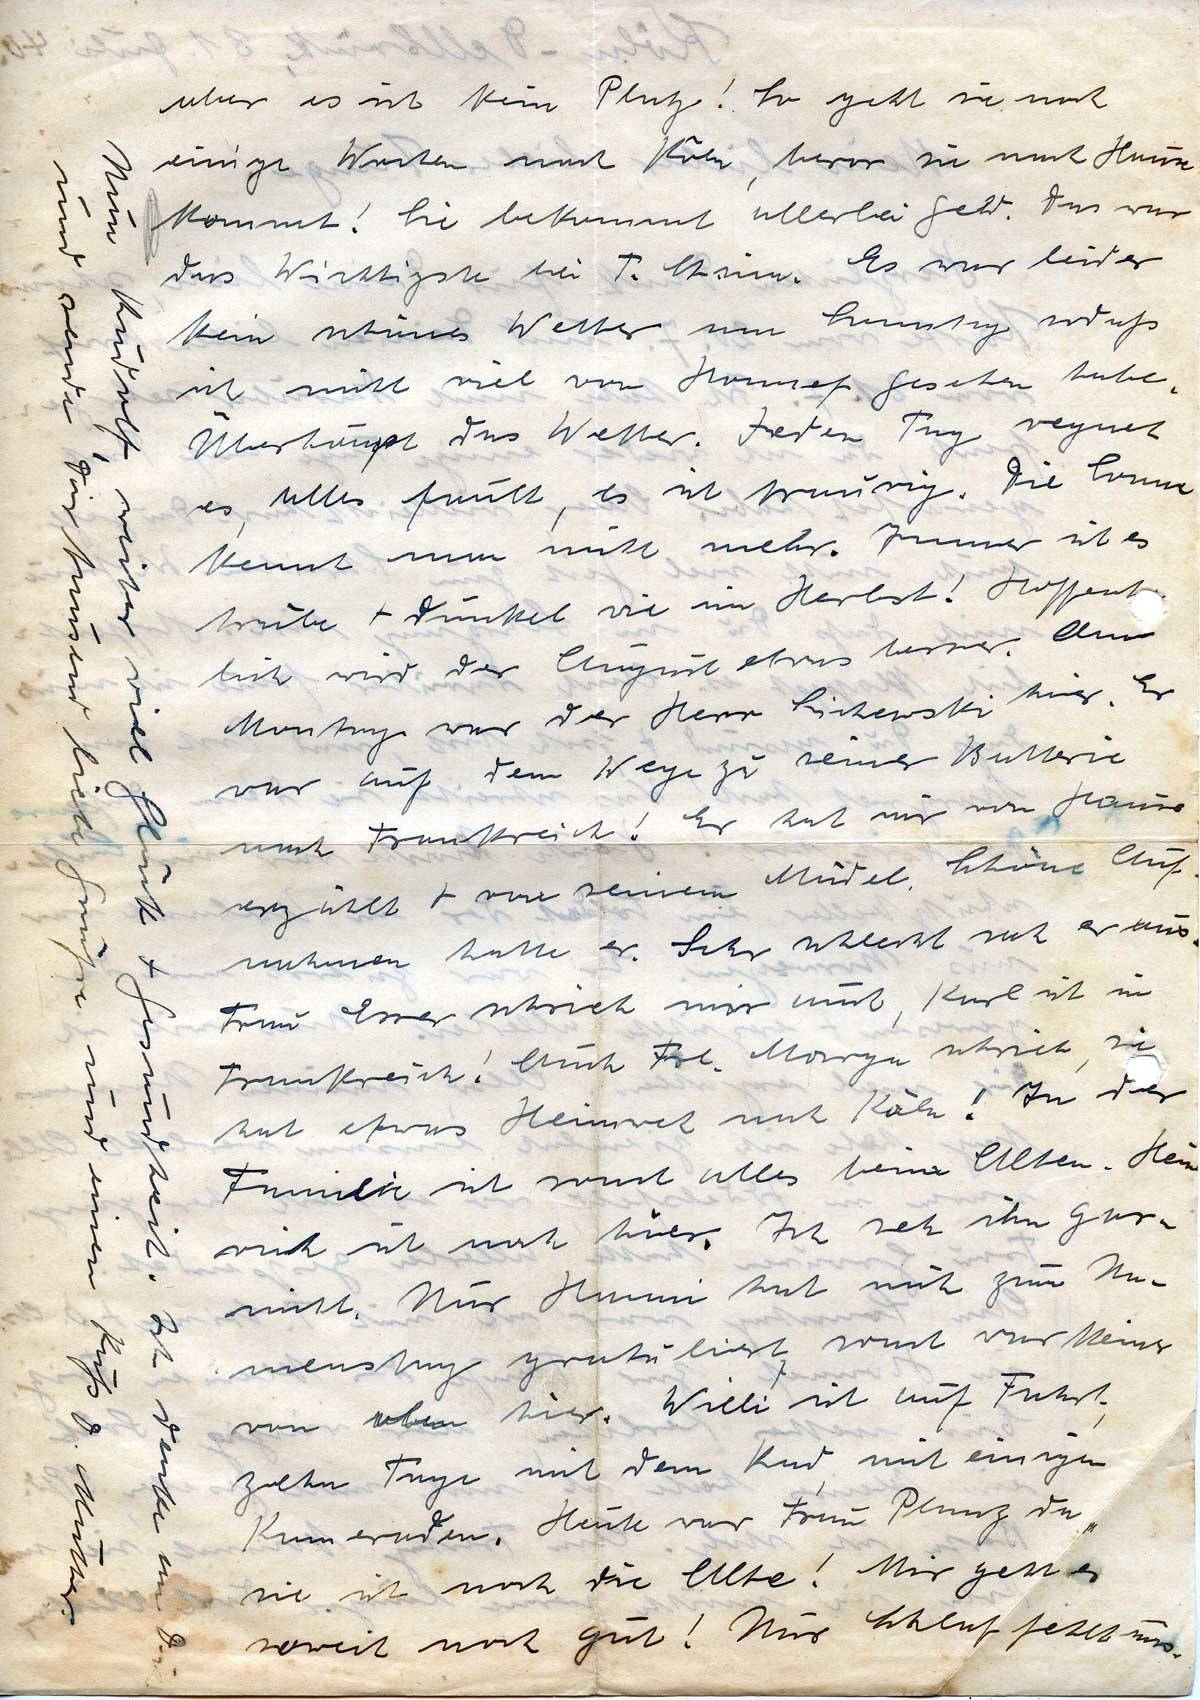 aber es ist kein Platz! So geht sie noch
einige Wochen nach Köln, bevor sie nach Hause
kommt! Sie bekommt allerlei Geld. Das war
das Wichtigste bei T.
Es war leider
kein schönes Wetter am Sonntag sodaß
ich nicht viel von Honnef gesehen habe.
Überhaupt das Wetter. Jeden Tag regnet
es, alles fault, es ist traurig. Die Sonne
kennt man nicht mehr. Immer ist es
trübe + dunkel wie im Herbst! Hoffent-
lich wird der August etwas besser. Am
Montag war der Herr Sichewski hier. Er
war auf dem Wege zu seiner Batterie
nach Frankreich! Er hat mir von Hause
erzählt + von seinem Mädel. Schöne Auf-
nahmen hatte er. Sehr schlecht sah er aus.
Frau Esser schrieb mir auch, Karl ist in
Frankreich! Auch Frl. Marga schrieb, sie
hat etwas Heimweh nach Köln! In der
Familie ist sonst alles beim Alten. Hein
rich ist noch hier. Ich seh ihn gar-
nicht. Nur Hanni hat mich zum Na-
menstag gratuliert, sonst war keiner
von oben hier. Willi ist auf Fahrt,
zehn Tage mit dem Rad, mit einigen
Kameraden. Heute war Frau Planz da,
sie ist noch die Alte! Mir geht es
soweit noch gut! Nur Schlaf fehlt uns.
Nun Rudolf, weiter viel Glück + Gesundheit. Ich denke an Dich
und sende Dir tausend liebe Grüße und einen Kuß d. Mutter.
Köln-Dellbrück, 31. Juli 40.